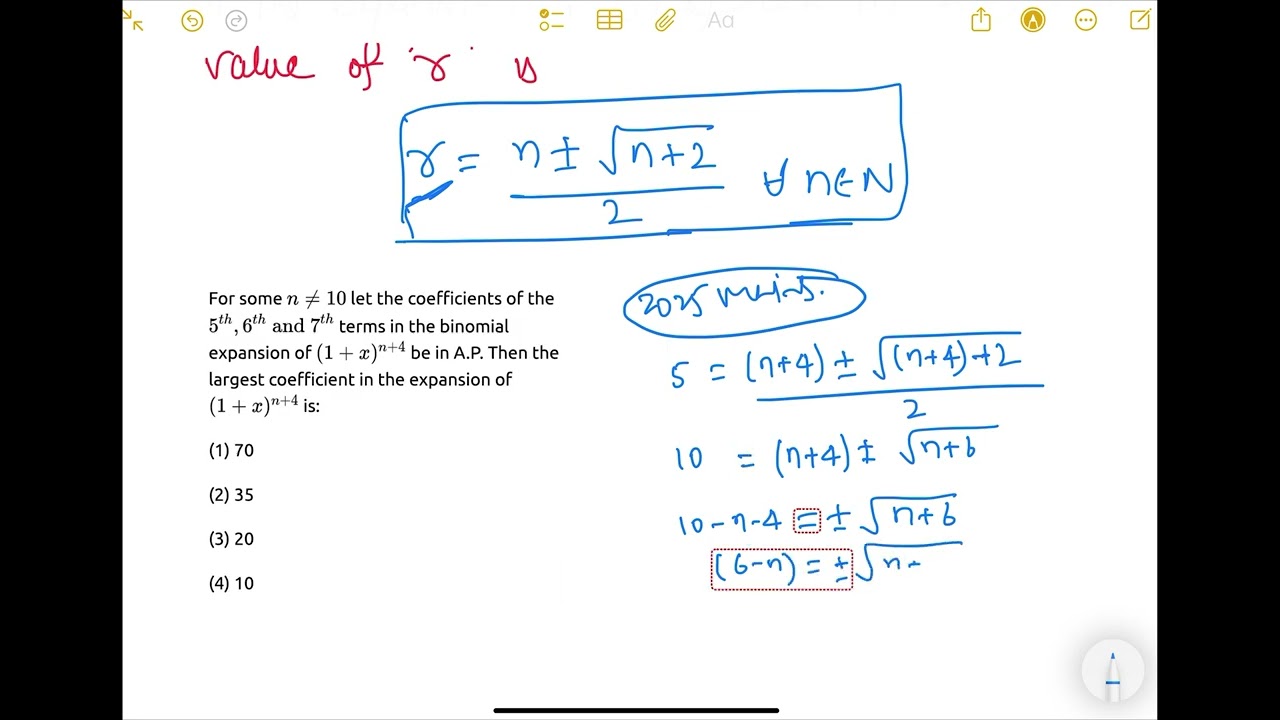 Aa
value of 'r' is
r = n ± √(n+2) / 2 ∀ n∈N
For some n ≠ 10 let the coefficients of the
5th, 6th and 7th terms in the binomial
expansion of (1 + x)^(n+4) be in A.P. Then the
largest coefficient in the expansion of
(1 + x)^(n+4) is:
(1) 70
(2) 35
(3) 20
(4) 10
2025 mains.
5 = (n+4) ± √((n+4)+2) / 2
10 = (n+4) ± √(n+6)
10-n-4 = ± √(n+6)
(6-n) = ± √(n